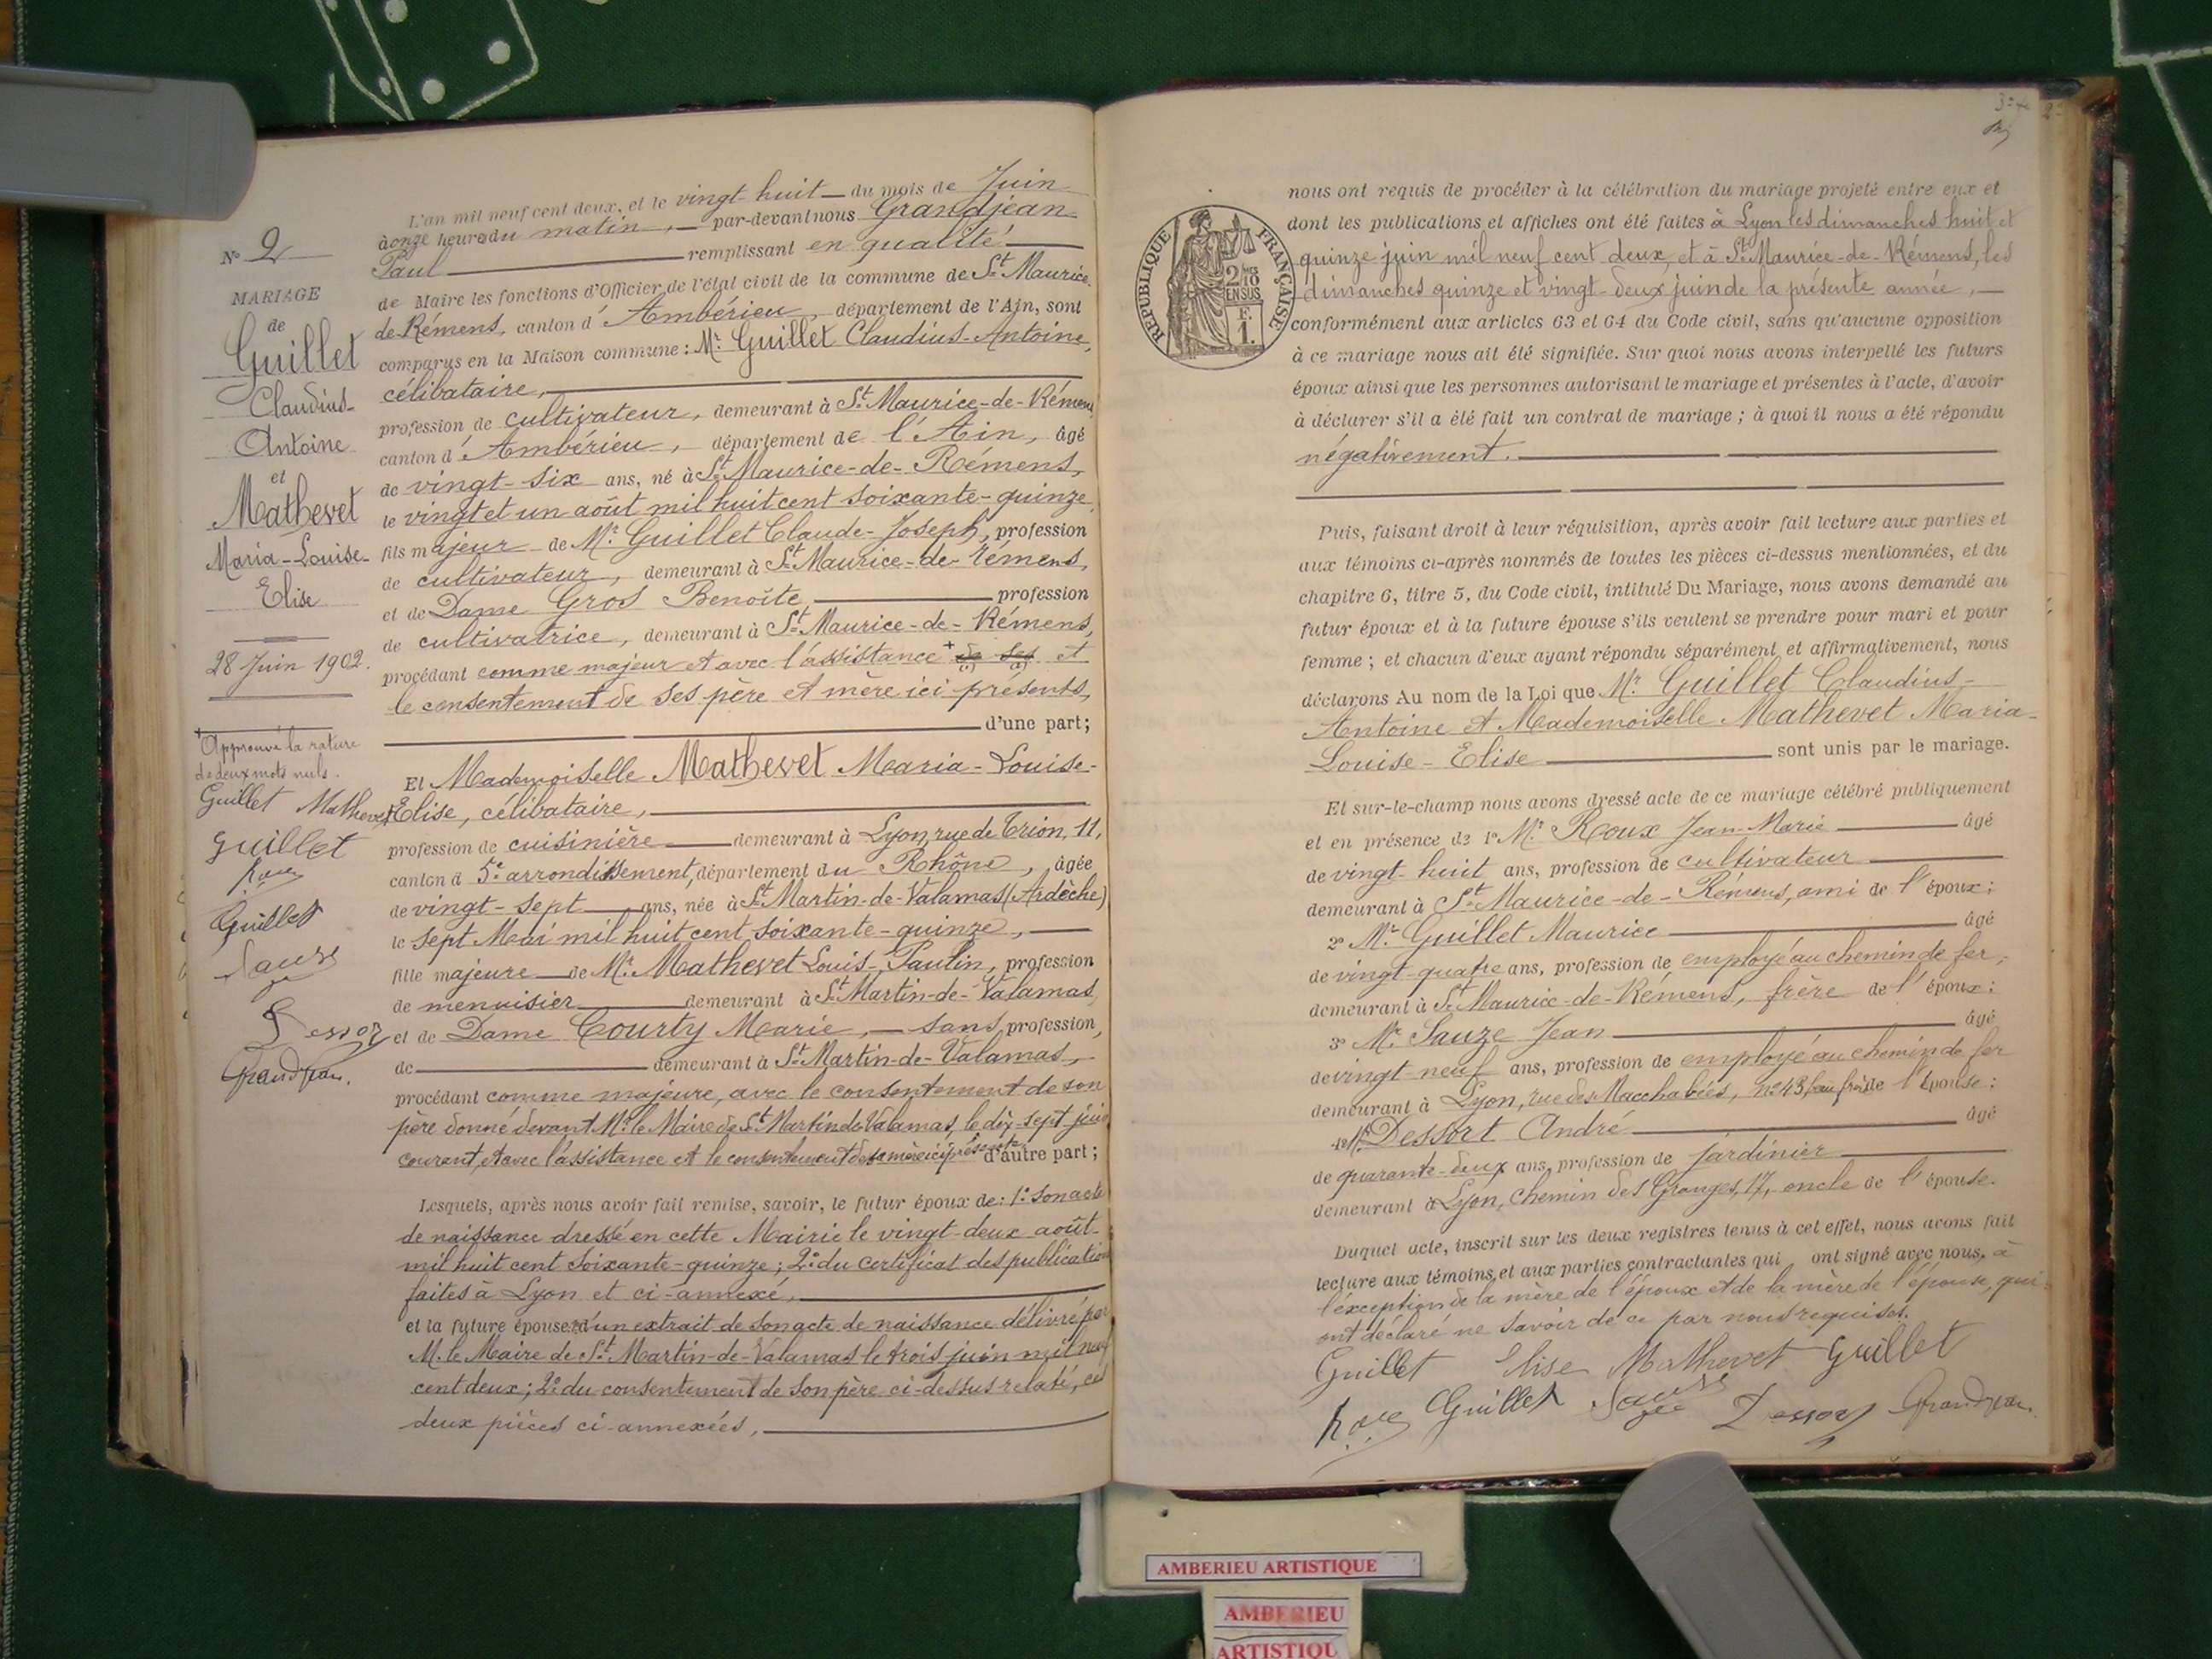 N° 2
MARIAGE
de
Guillet
Claudius-
Antoine
et
Mathevet
Maria-Louise-
Elise
28 Juin 1902.
+ Approuvé la rature
de deux mots nuls.
Guillet Mathevet
Guillet
Roux
Guillet
Sauze
Dessor
Grandjean.
L'an mil neuf cent deux, et le vingt-huit du mois de Juin
à onze heures du matin, par-devant nous Grandjean
Paul remplissant en qualité
de Maire les fonctions d'Officier de l'état civil de la commune de St Maurice-
de-Rémens, canton d'Ambérieu, département de l'Ain, sont
comparus en la Maison commune : Mr Guillet Claudius-Antoine,
célibataire,
profession de cultivateur, demeurant à St Maurice-de-Rémens
canton d'Ambérieu, département de l'Ain, âgé
de vingt-six ans, né à St Maurice-de-Rémens,
le vingt et un août mil huit cent soixante-quinze,
fils majeur de Mr Guillet Claude-Joseph, profession
de cultivateur, demeurant à St Maurice-de-Rémens,
et de Dame Gros Benoîte profession
de cultivatrice, demeurant à St Maurice-de-Rémens,
procédant comme majeur et avec l'assistance + de ses et
le consentement de ses père et mère ici présents,
d'une part;
Et Mademoiselle Mathevet Maria-Louise-
Elise, célibataire,
profession de cuisinière demeurant à Lyon, rue de Trion, 11,
canton d 5e arrondissement, département du Rhône, âgée
de vingt-sept ans, née à St Martin-de-Valamas (Ardèche)
le sept Mai mil huit cent soixante-quinze,
fille majeure de Mr Mathevet Louis-Paulin, profession
de menuisier demeurant à St Martin-de-Valamas
et de Dame Courty Marie, sans profession,
de demeurant à St Martin-de-Valamas,
procédant comme majeure, avec le consentement de son
père donné devant Mr le Maire de St Martin de Valamas, le dix-sept juin
courant, et avec l'assistance et le consentement de sa mère ici présente d'autre part ;
Lesquels, après nous avoir fait remise, savoir, le futur époux de : 1° son acte
de naissance dressé en cette Mairie le vingt-deux août
mil huit cent soixante-quinze ; 2° du certificat des publications
faites à Lyon et ci-annexé,
et la future épouse d'un extrait de son acte de naissance délivré par
M. le Maire de St Martin-de-Valamas le trois juin mil neuf
cent deux ; 2° du consentement de son père ci-dessus relaté, ces
deux pièces ci-annexées,
REPUBLIQUE FRANÇAISE
2/10
EN SUS
F.
1.
nous ont requis de procéder à la célébration du mariage projeté entre eux et
dont les publications et affiches ont été faites à Lyon les dimanches huit et
quinze juin mil neuf cent deux, et à St Maurice-de-Rémens, les
dimanches quinze et vingt-deux juin de la présente année,
conformément aux articles 63 et 64 du Code civil, sans qu'aucune opposition
à ce mariage nous ait été signifiée. Sur quoi nous avons interpellé les futurs
époux ainsi que les personnes autorisant le mariage et présentes à l'acte, d'avoir
à déclarer s'il a été fait un contrat de mariage ; à quoi il nous a été répondu
négativement.
Puis, faisant droit à leur réquisition, après avoir fait lecture aux parties et
aux témoins ci-après nommés de toutes les pièces ci-dessus mentionnées, et du
chapitre 6, titre 5, du Code civil, intitulé Du Mariage, nous avons demandé au
futur époux et à la future épouse s'ils veulent se prendre pour mari et pour
femme ; et chacun d'eux ayant répondu séparément et affirmativement, nous
déclarons Au nom de la Loi que Mr Guillet Claudius-
Antoine et Mademoiselle Mathevet Maria-
Louise-Elise sont unis par le mariage.
Et sur-le-champ nous avons dressé acte de ce mariage célébré publiquement
et en présence de 1° Mr Roux Jean-Marie âgé
de vingt-huit ans, profession de cultivateur
demeurant à St Maurice-de-Rémens, ami de l'époux ;
2° Mr Guillet Maurice âgé
de vingt-quatre ans, profession de employé au chemin de fer,
demeurant à St Maurice-de-Rémens, frère de l'époux ;
3° Mr Sauze Jean âgé
de vingt-neuf ans, profession de employé au chemin de fer
demeurant à Lyon, rue des Macchabées, n° 43, de l'épouse ;
4° Mr Dessort André âgé
de quarante-deux ans, profession de jardinier
demeurant à Lyon, chemin des Granges, 17, oncle de l'épouse.
Duquel acte, inscrit sur les deux registres tenus à cet effet, nous avons fait
lecture aux témoins, et aux parties contractantes qui ont signé avec nous, à
l'exception de la mère de l'époux et de la mère de l'épouse, qui
ont déclaré ne savoir de ce par nous requises.
Guillet Elise Mathevet Guillet
Roux Guillet Sauze Dessor Grandjean.
AMBERIEU ARTISTIQUE
AMBERIEU
ARTISTIQU